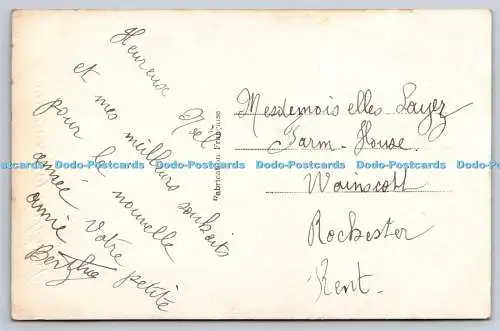 Heureux Noël
et mes meilleurs souhaits
pour la nouvelle
année. Votre petite
amie
Berthe
Fabrication Française
Mesdemoiselles Layer
Farm-House
Wainscott
Rochester
Kent.
Dodo-Postcards Dodo-Postcards Dodo-Postcards Dodo-Postcards Dodo-Postcards Dodo-Postcards